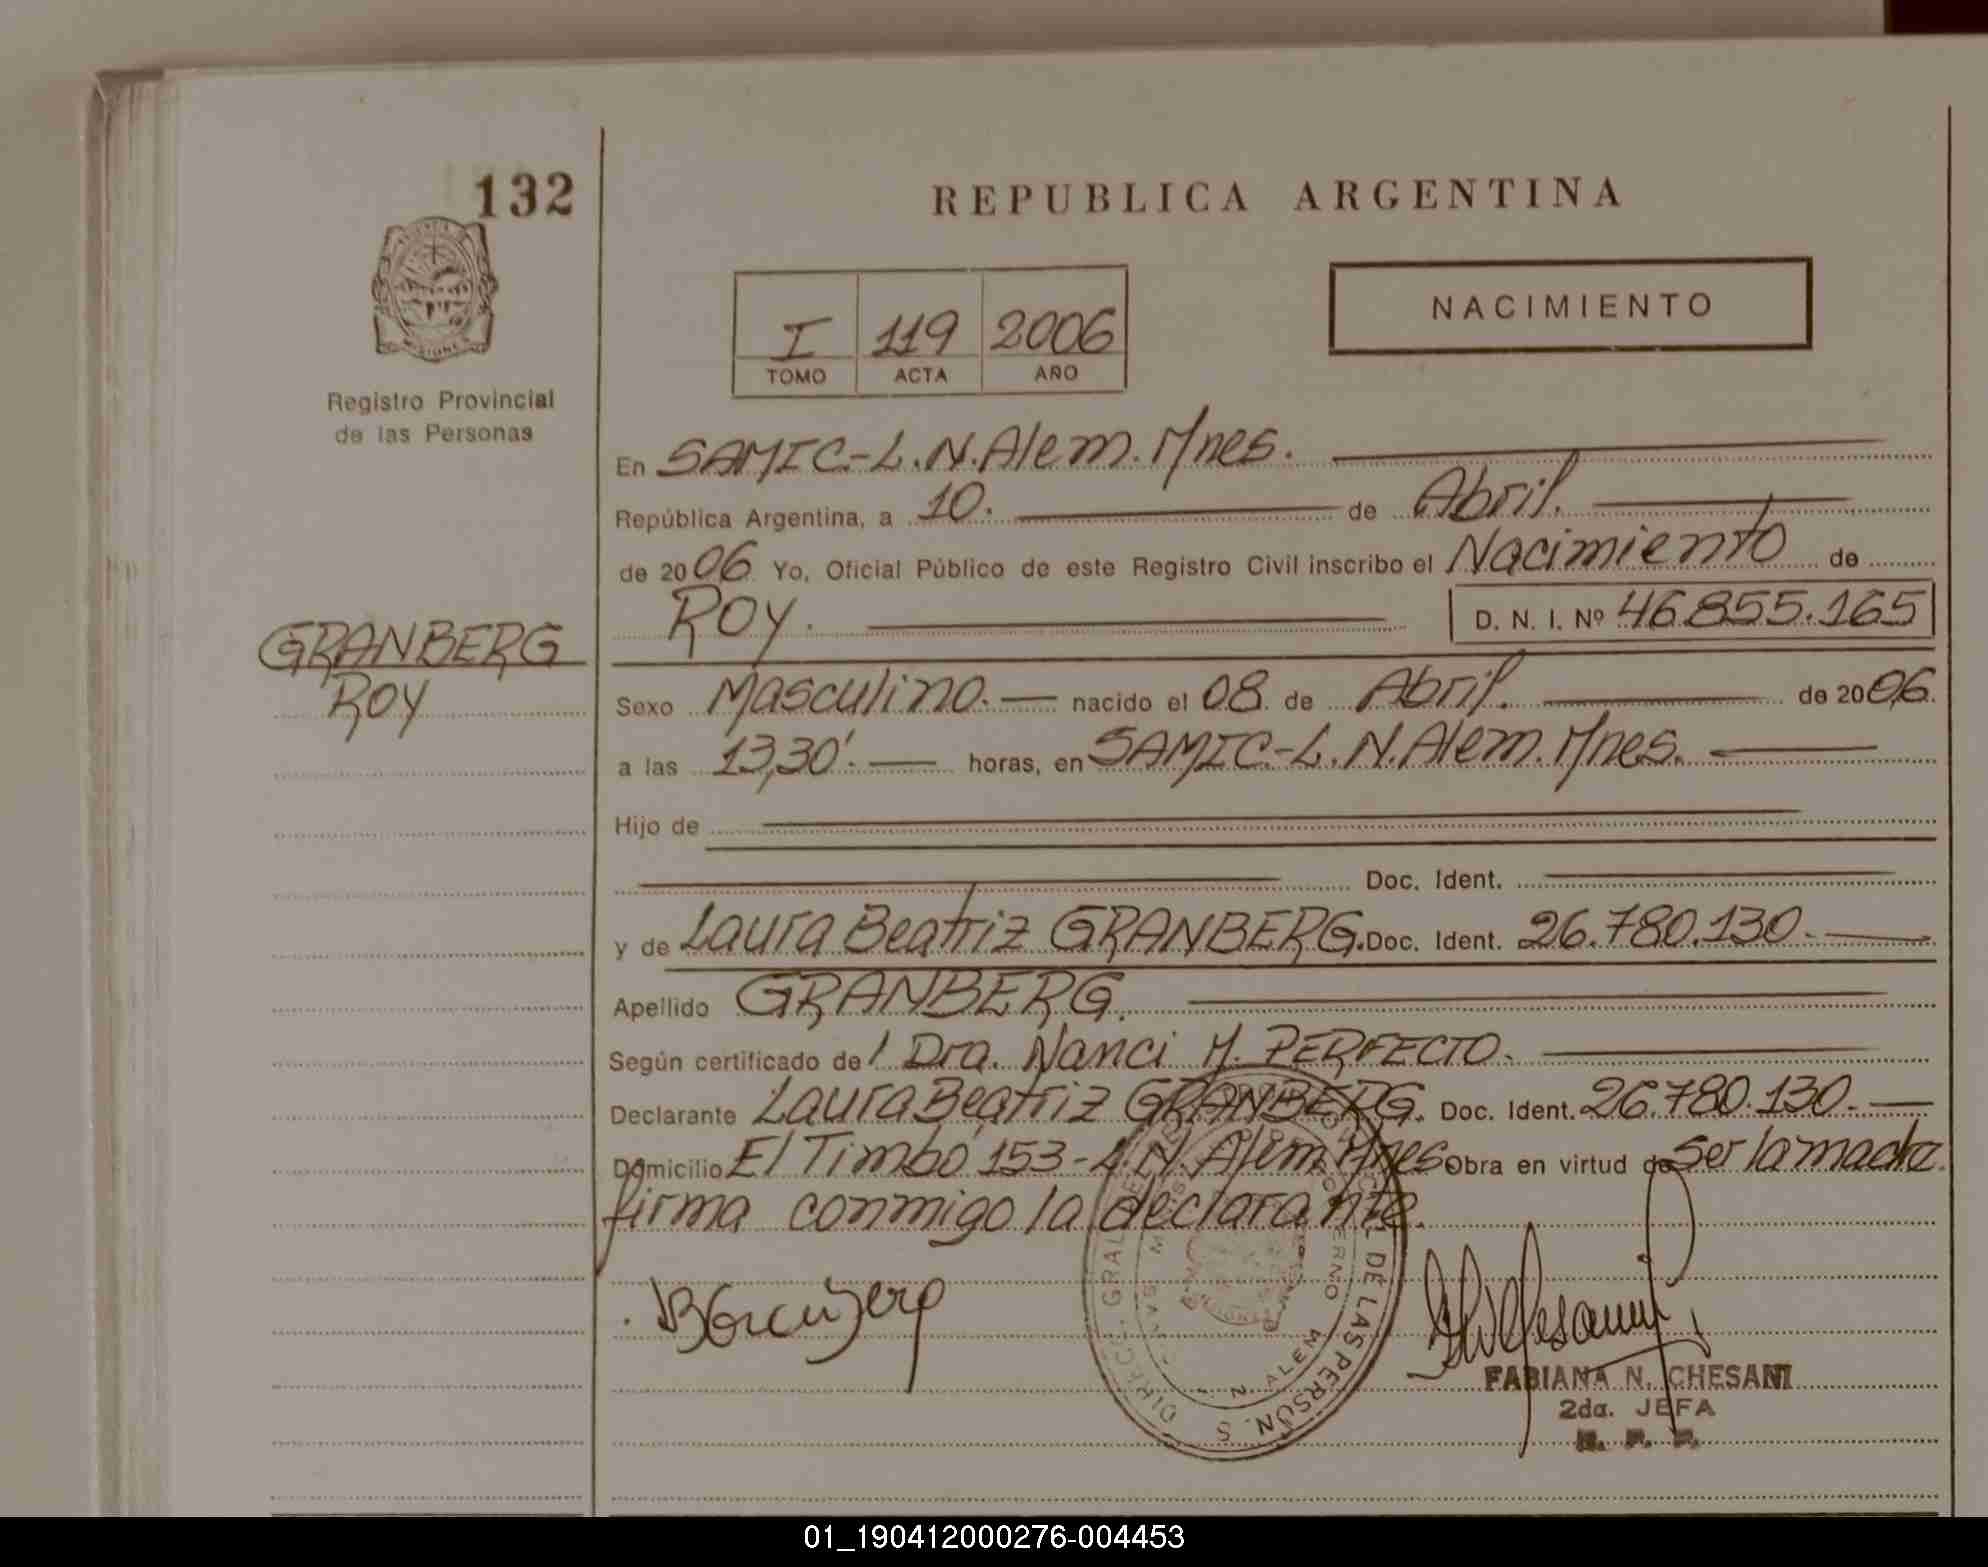 132
REPUBLICA ARGENTINA
NACIMIENTO
I 119 2006
TOMO ACTA AÑO
MISIONES
Registro Provincial
de las Personas
En SAMIC.-L.N.Alem.Mnes.
República Argentina, a 10. de Abril.
de 2006 Yo, Oficial Público de este Registro Civil inscribo el Nacimiento de
ROY. D. N. I. Nº 46.855.165
GRANBERG
ROY
Sexo Masculino. nacido el 08. de Abril. de 2006.
a las 13,30'. horas, en SAMIC.-L.N.Alem.Mnes.
Hijo de
Doc. Ident.
y de Laura Beatriz GRANBERG. Doc. Ident. 26.780.130.
Apellido GRANBERG.
Según certificado de l Dra. Nanci M. PERFECTO.
Declarante Laura Beatriz GRANBERG. Doc. Ident. 26.780.130.
Domicilio El Timbó 153-L.N.Alem Mnes. Obra en virtud de ser la madre.
firma conmigo la declarante.
DE LAS PERSON S
N ALEM
FABIANA N. CHESANI
2da. JEFA
01_190412000276-004453